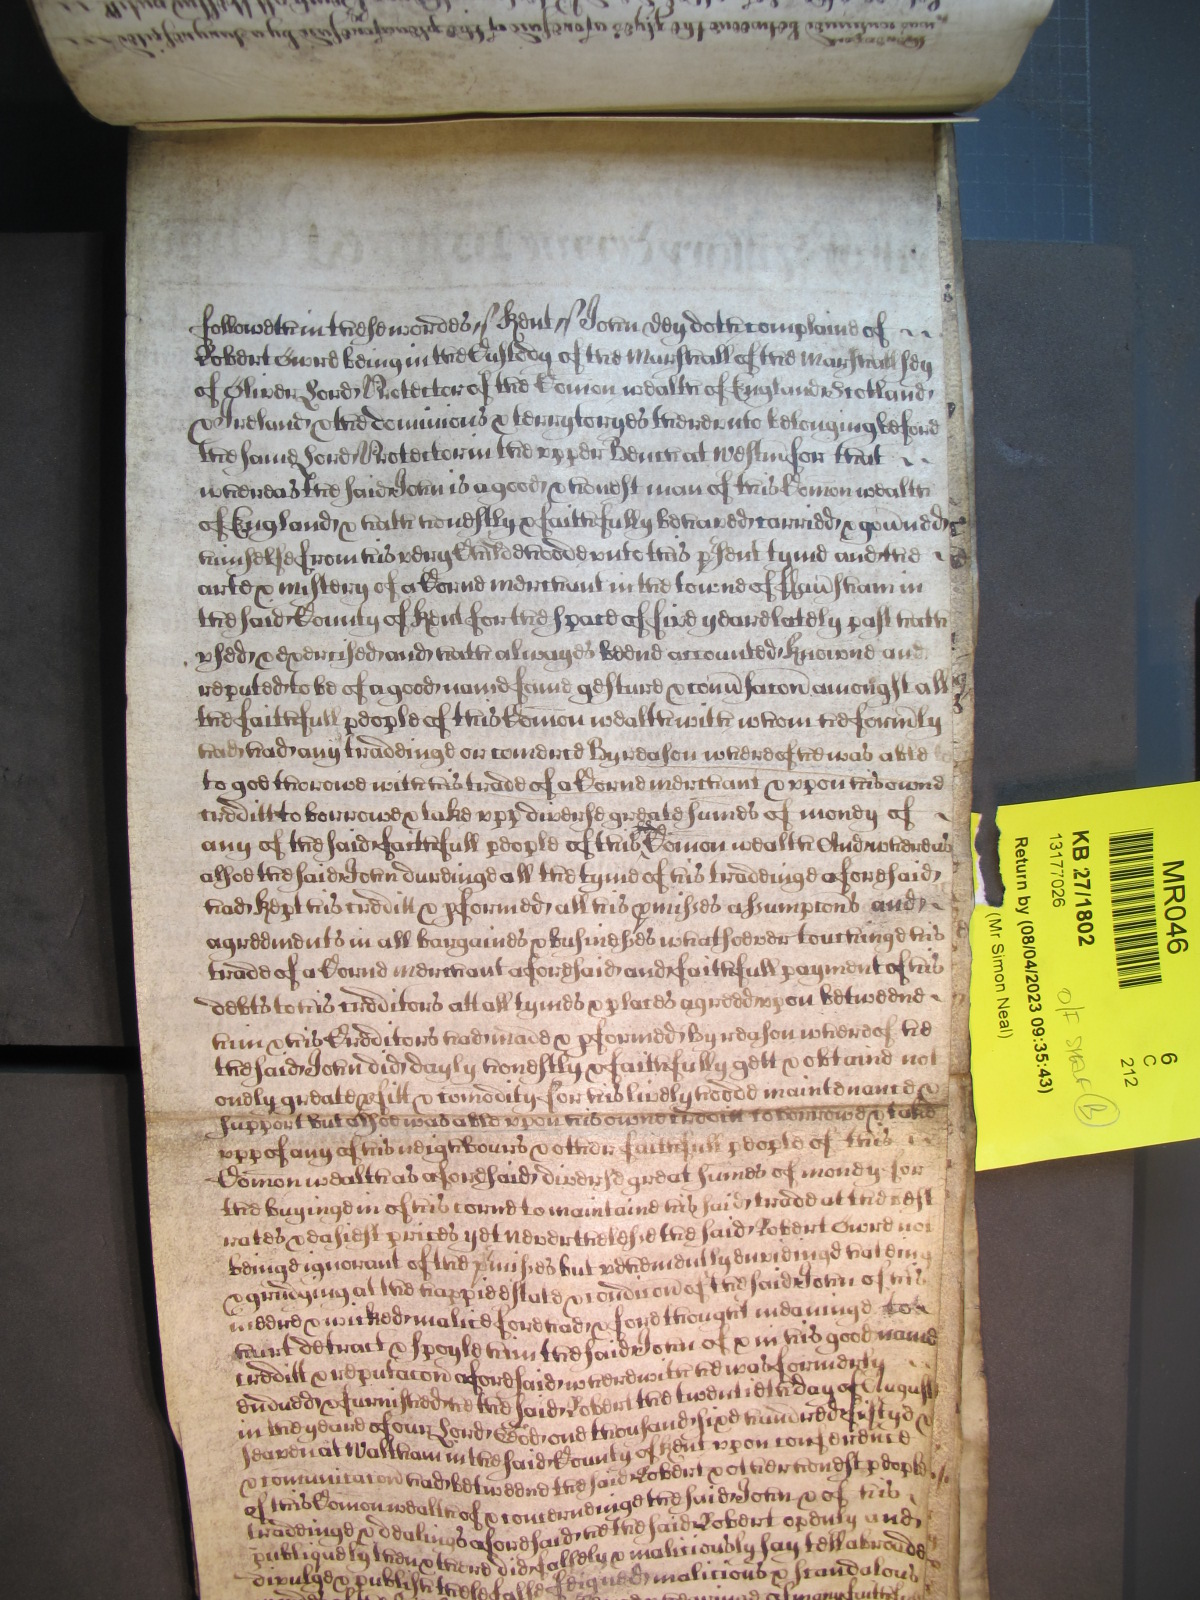 followeth in these wordes // Kent // John Dey doth complaine of
Robert Gwre being in the Custody of the Marshall of the Marshallsey
of Oliver Lord Protector of the Comon wealth of England Scotland
& Ireland & the dominions & terrytoryes thereunto belonging before
the same Lord Protector in the upper Bench at Westm for that
whereas the said John is a good & honest man of this Comon wealth
of England & hath honestly & faithfully behaved carried & governed
himselfe from his very Childehoode unto this psent tyme and the
arte & mistery of a Corne merchant in the towne of in
the said County of Kent for the space of five yeare lately past hath
vsed & exercised and hath alwayes beene accounted knowne and
reputed to be of a good name fame gesture & conusacon amongst all
the faithfull people of this Comon wealth with whom he formerly
had had any tradeinge or comerce By reason whereof he was able to
to goe thorowe with his trade of a Corne merchant & vpon his owne
creditt to borrowe & take vpp diverse greate sumes of money of
any of the said faithfull people of this Comon wealth And whereas
alsoe the said John dureinge all the tyme of his tradeinge aforesaid
had kept his creditt & pformed all his pmises assumpcons and
agreements in all bargaines & businesses whatsoever touchinge his
trade of a Corne merchant aforesaid and faithfull payment of his
debts to his creditors att all tymes & places agreed vpon betweene
him & his Creditors had made & pformed By reason whereof he
the said John did dayly honestly & faithfully gett & obtaine not
onely greate pfitt & comodity for his livelyhoode maintenance &
support but alsoe was able vpon his owne creditt to borrowe & take
vpp of any of his neighbours & other faithfull people of this
Comon wealth as aforesaid diverse great sumes of money for
the buyinge in of his corne to maintaine his said trade at the best
rates & easiest prices yet neverthelesse the said Robert Gwre not
beinge ignorant of the pmisses but vehemently envieinge hateing
& grudging at the happie estate & condicon of the said John of his
meere & wicked malice forehad & forethought meaninge to
hurt detract & spoyle him the said John of & in his good name
creditt & reputacon aforesaid wherewith he was formerly
endued & furnished he the said Robert the twentieth day of August
in the yeare of our Lord God one thousand sixe hundred fiftye &
seaven at Waltham in the said County of Kent vpon conference
& comunicacon had betweene the said Robert & other honest people
of this Comon wealth of & concerneinge the said John & of his
tradeinge & dealings aforesaid he the said Robert openly and
publiquely then & there did falsely & maliciously say tell abroade
divulge & publish these false feigned malicious & scandalous
MR046
KB 27/1802
13177026
Return by (08/04/2023 09:35:43)
(Mr Simon Neal)
6
C
212
O/F
B